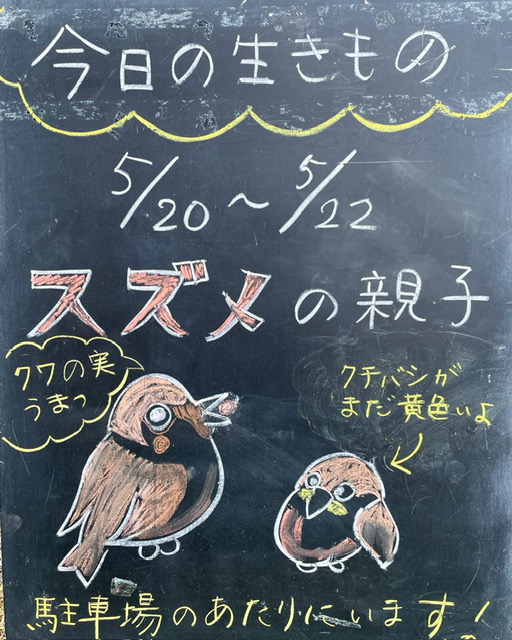 今日の生きもの
5/20～5/22
スズメの親子
クワの実
うまっ
クチバシが
まだ黄色いよ
駐車場のあたりにいます!